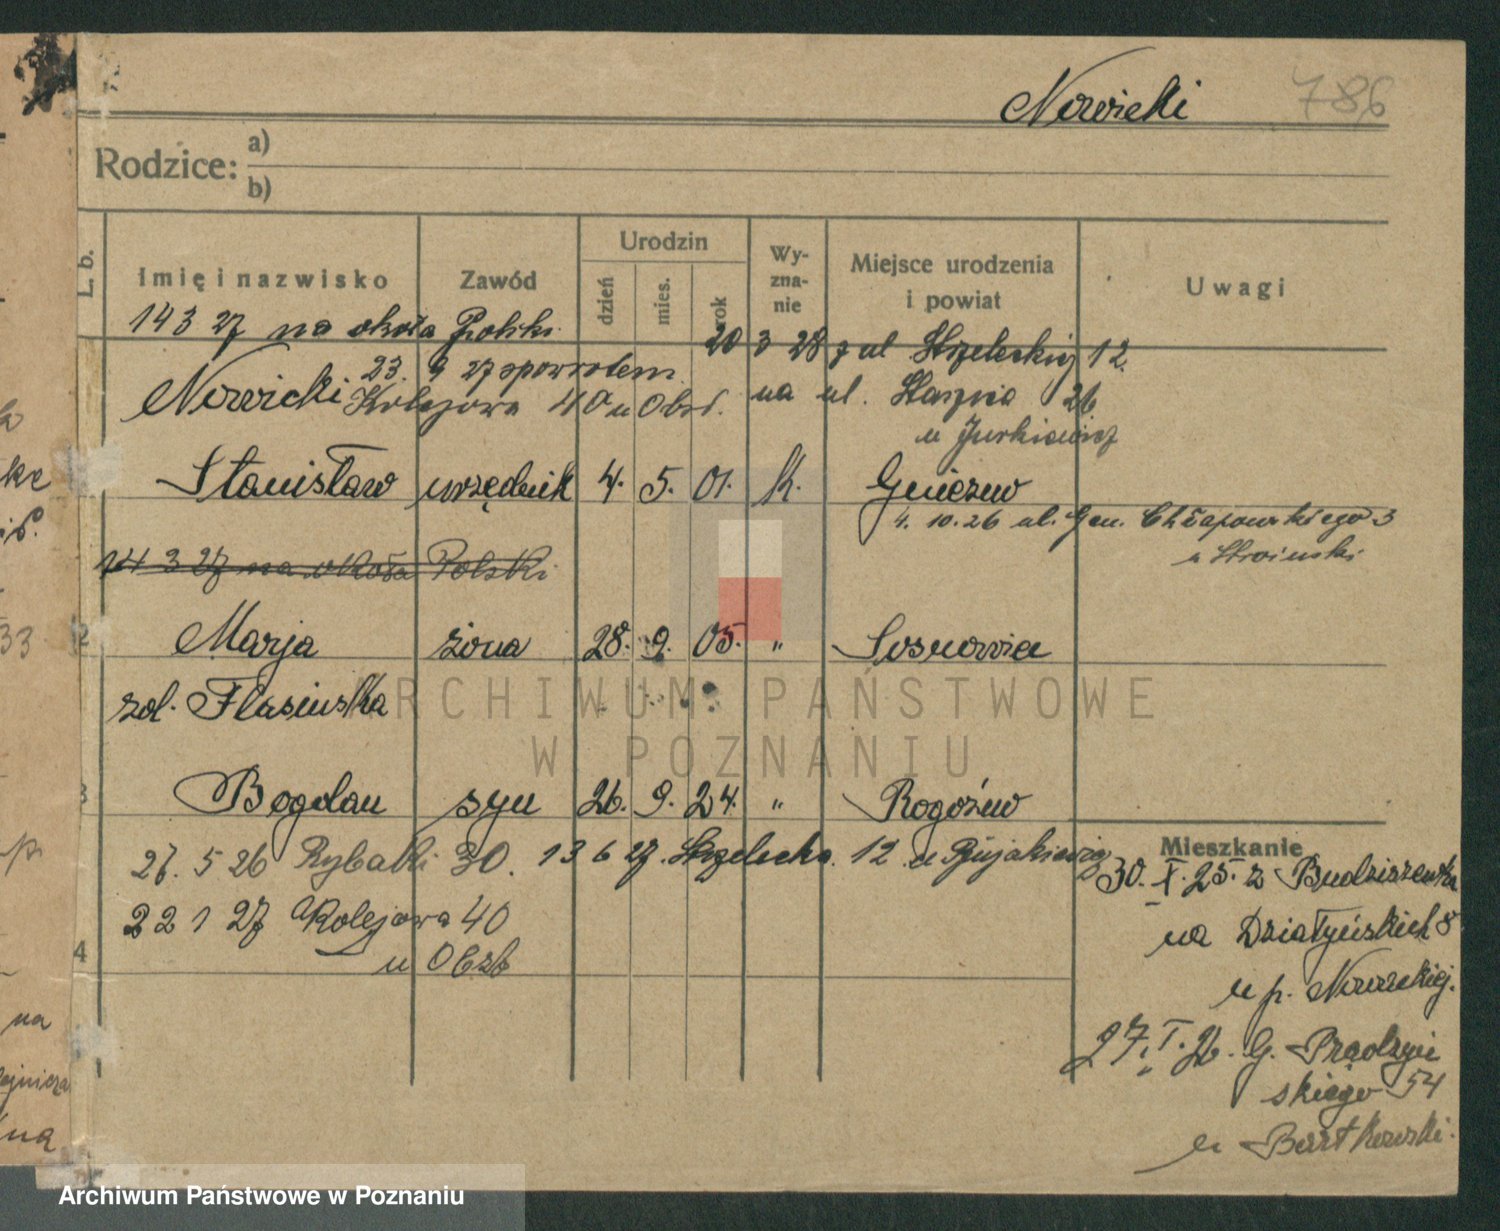 Nowicki 786
Rodzice: a)
b)
L. b. Imię i nazwisko Zawód Urodzin Wyznanie Miejsce urodzenia i powiat Uwagi
dzień mies. rok
14 3 27 na około Polski
20 3 28 z ul Strzeleckiej 12.
23. 9 27 spowrotem
Nowicki Kolejowa 40 u Obst. na ul. Staszica 26
u Jurkiewicz
Stanisław urzędnik 4. 5. 01. k. Gniezno
4. 10. 26 ul. Gen. Chłapowskiego 3
u Stroinski
14 3 27 na około Polski
2 Marja żona 28. 9. 05. " Sosnowice
zd. Flasińska
3 Bogdan syn 26. 9. 24. " Rogoźno
27. 5 26 Rybaki 30. 13 6 27. Strzelecka 12 u
Mieszkanie
30. X. 25. z Budziszewka
22 1 27 Kolejowa 40
na Działyńskich 8
4 u Obst
u p. Nowickiej.
27. I. 26. G. Prądzyń
skiego 54
u Bartkowski.
ARCHIWUM PAŃSTWOWE
W POZNANIU
Archiwum Państwowe w Poznaniu
33
na